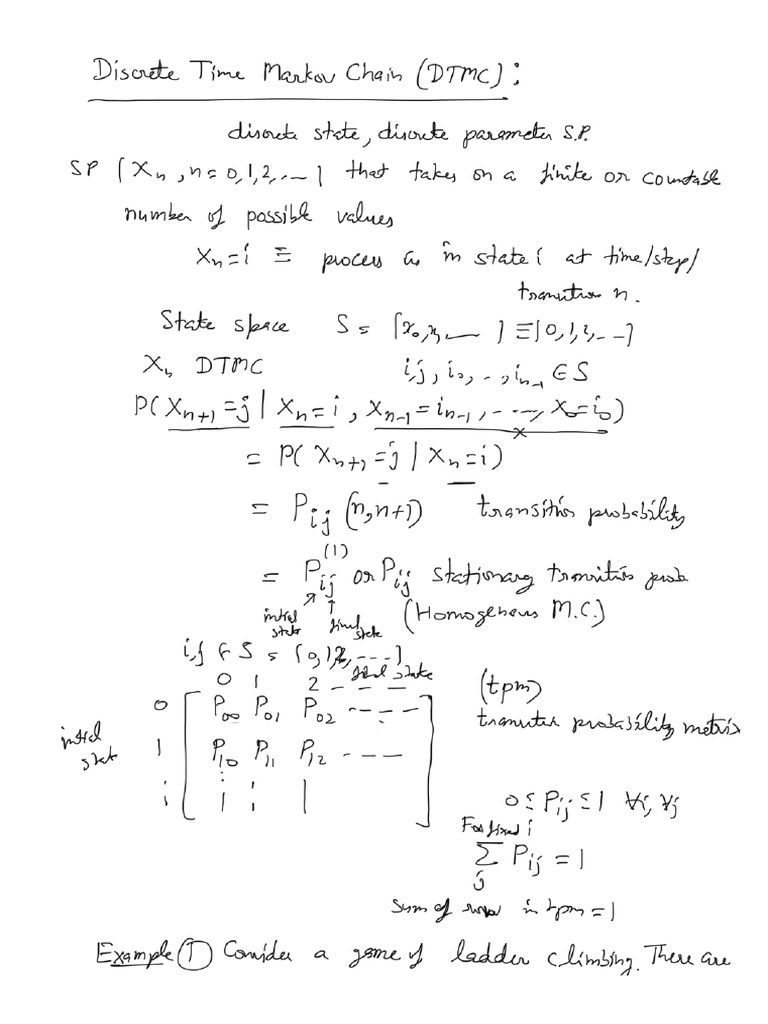 Discrete Time Markov Chain (DTMC):
discrete state, discrete parameter S.P.
SP {Xn, n=0,1,2,...} that takes on a finite or countable
number of possible values
Xn=i ≡ process is in state i at time/step/
transition n.
State space S = {x0, x1, — } ≡ {0,1,2,...}
Xn DTMC i,j, i0, .., in-1 ∈ S
P(Xn+1=j | Xn=i, Xn-1=in-1, ..., X0=i0)
= P(Xn+1=j | Xn=i)
= Pij(n,n+1) transition probability
= Pij(1) or Pij stationary transition prob
initial state final state (Homogeneous M.C.)
i,j ∈ S = {0,1,2,---}
0 1 2 ---- final state
0 P00 P01 P02 ---- (tpm)
initial state transition probability matrix
1 P10 P11 P12 ---
i
0 ≤ Pij ≤ 1 ∀i, ∀j
For fixed i
∑j Pij = 1
Sum of row in tpm = 1
Example ① Consider a game of ladder climbing. There are